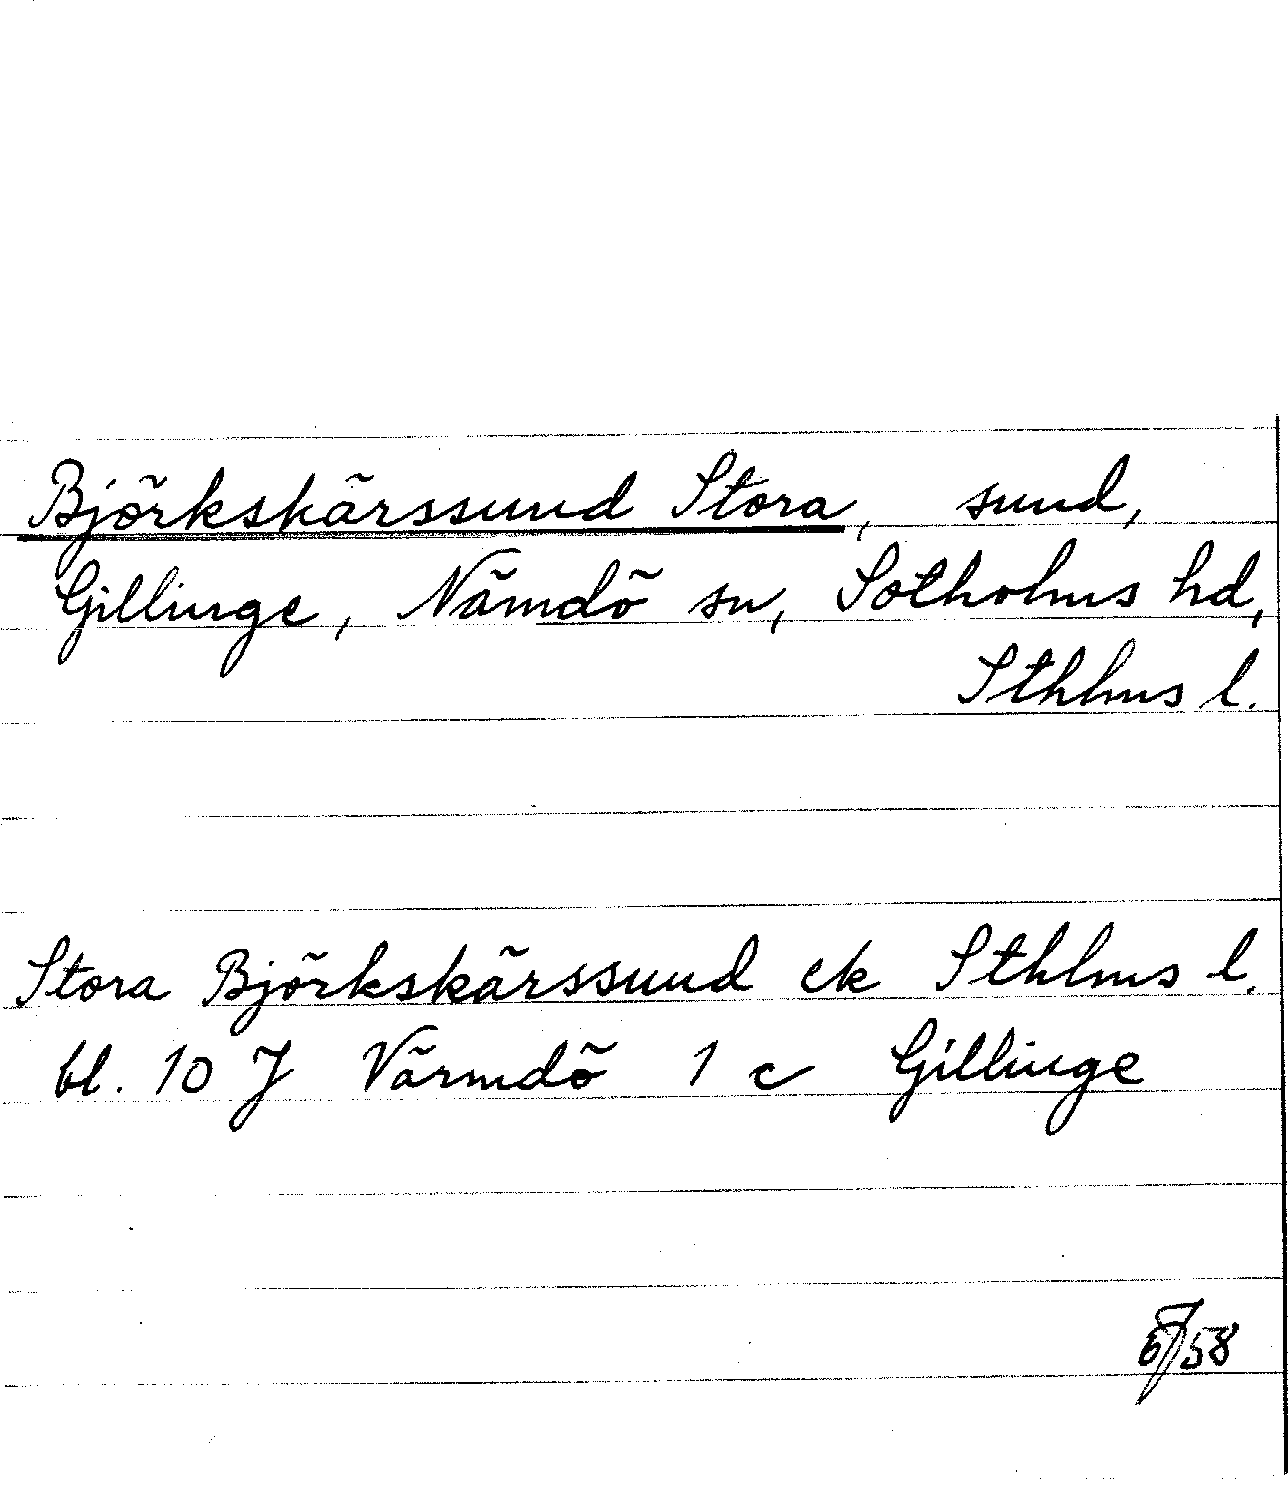 Björkskärssund Stora, sund,
Gillinge, Nämdö sn, Sotholms hd,
Sthlms l.
Stora Björkskärssund ek Sthlms l.
bl. 10 J Värmdö 1 c Gillinge